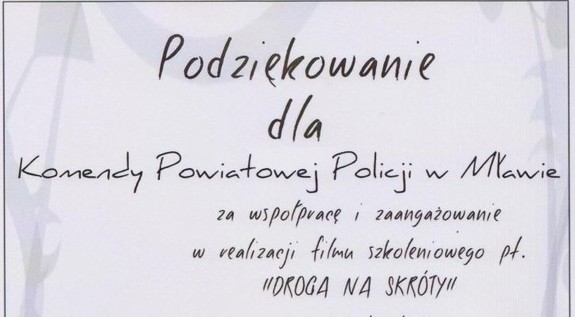 Podziękowanie
dla
Komendy Powiatowej Policji w Mławie
za współpracę i zaangażowanie
w realizacji filmu szkoleniowego pt.
"DROGA NA SKRÓTY"